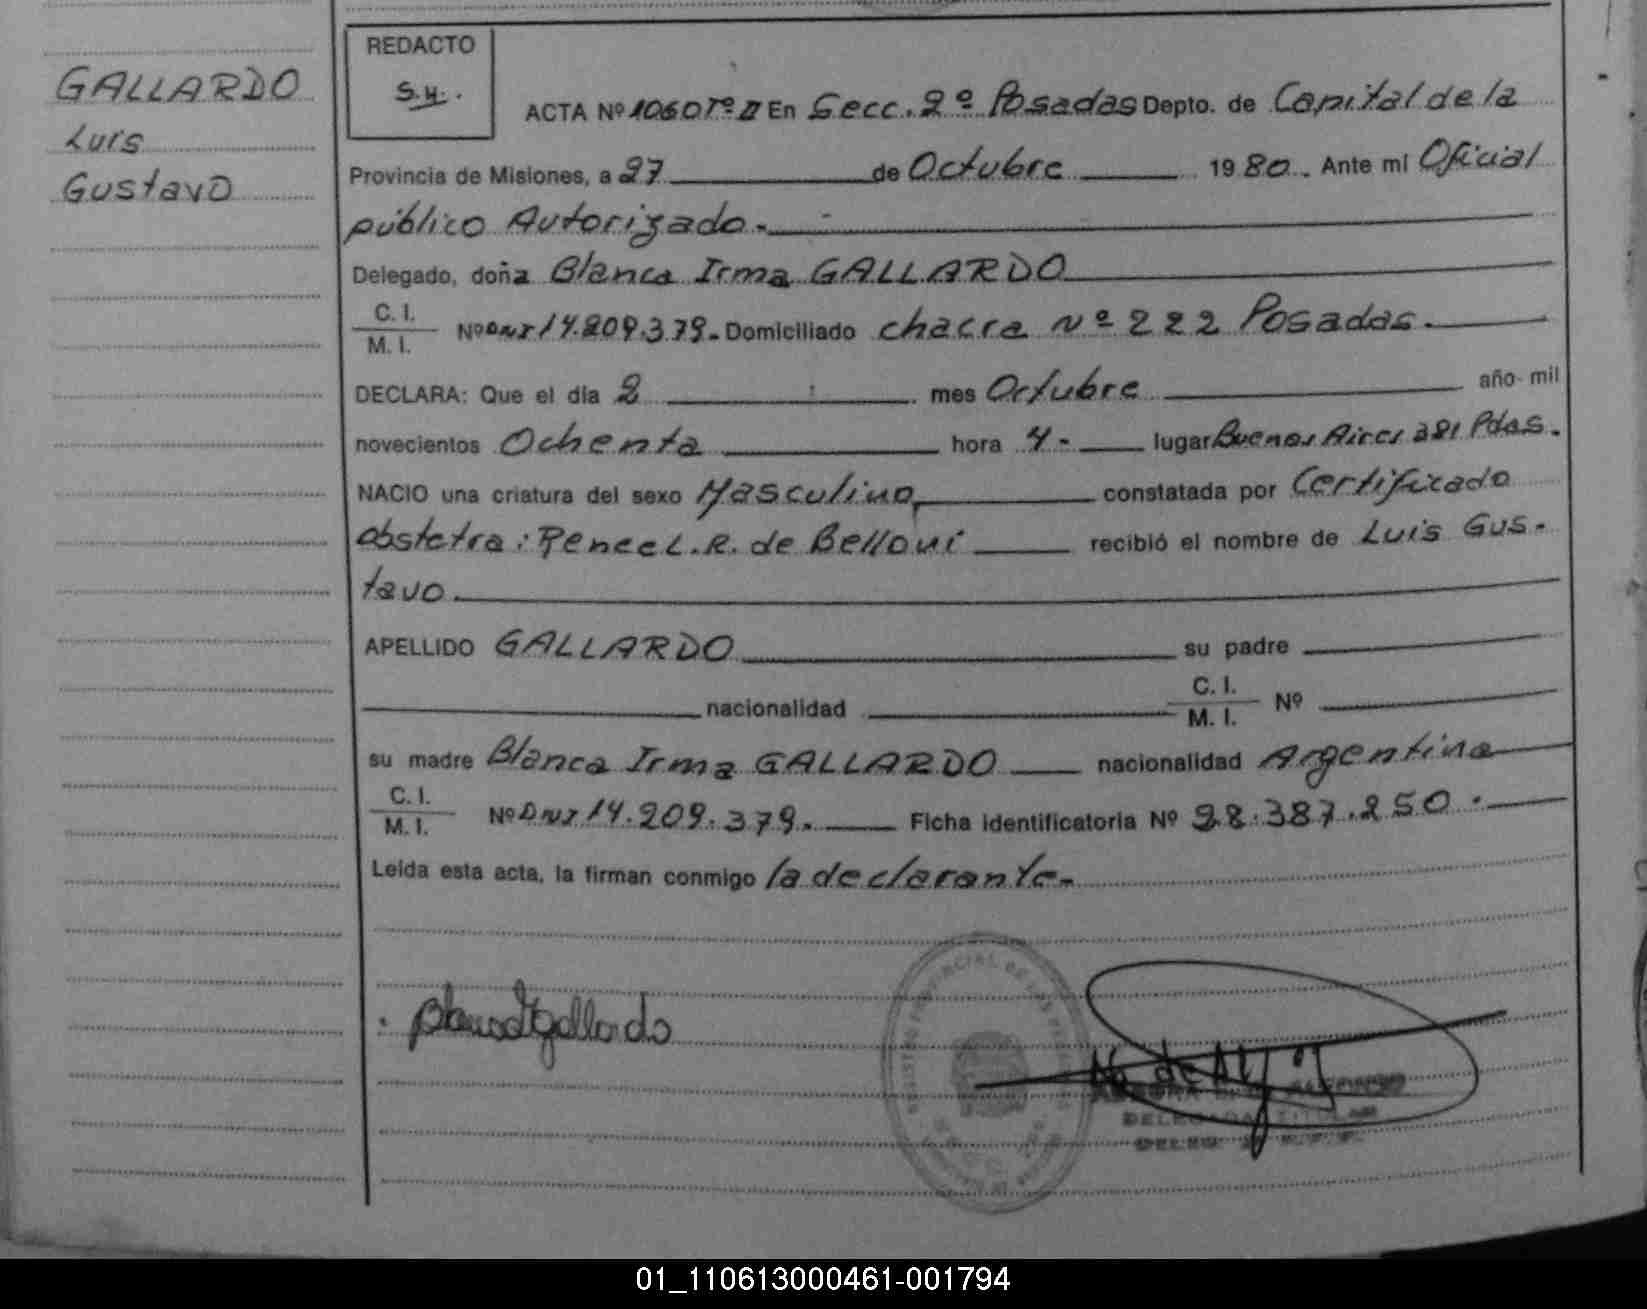 GALLARDO
Luis
Gustavo
REDACTO
S.H.
ACTA Nº 1060 Tº II En Secc. 2º Posadas Depto. de Capital de la
Provincia de Misiones, a 27 de Octubre 1980. Ante mi Oficial
público Autorizado.-
Delegado, doña Blanca Irma GALLARDO
C. I.
M. I.
Nº DNI 14.209.379.- Domiciliado chacra nº 222 Posadas.
DECLARA: Que el dia 2 mes Octubre año mil
novecientos Ochenta hora 4.- lugar Buenos Aires 281 Pdas.
NACIO una criatura del sexo Masculino, constatada por Certificado
obstetra: Renee L. R. de Belloni recibió el nombre de Luis Gus-
tavo
APELLIDO GALLARDO su padre
nacionalidad C. I.
M. I.
Nº
su madre Blanca Irma GALLARDO nacionalidad Argentina
C. I.
M. I.
Nº DNI 14.209.379.- Ficha identificatoria Nº 28.387.250.-
Leida esta acta, la firman conmigo la declarante.-
Gallardo
REGISTRO PROVINCIAL DE LAS PERSONAS
DELEGADA TITULAR
01_110613000461-001794